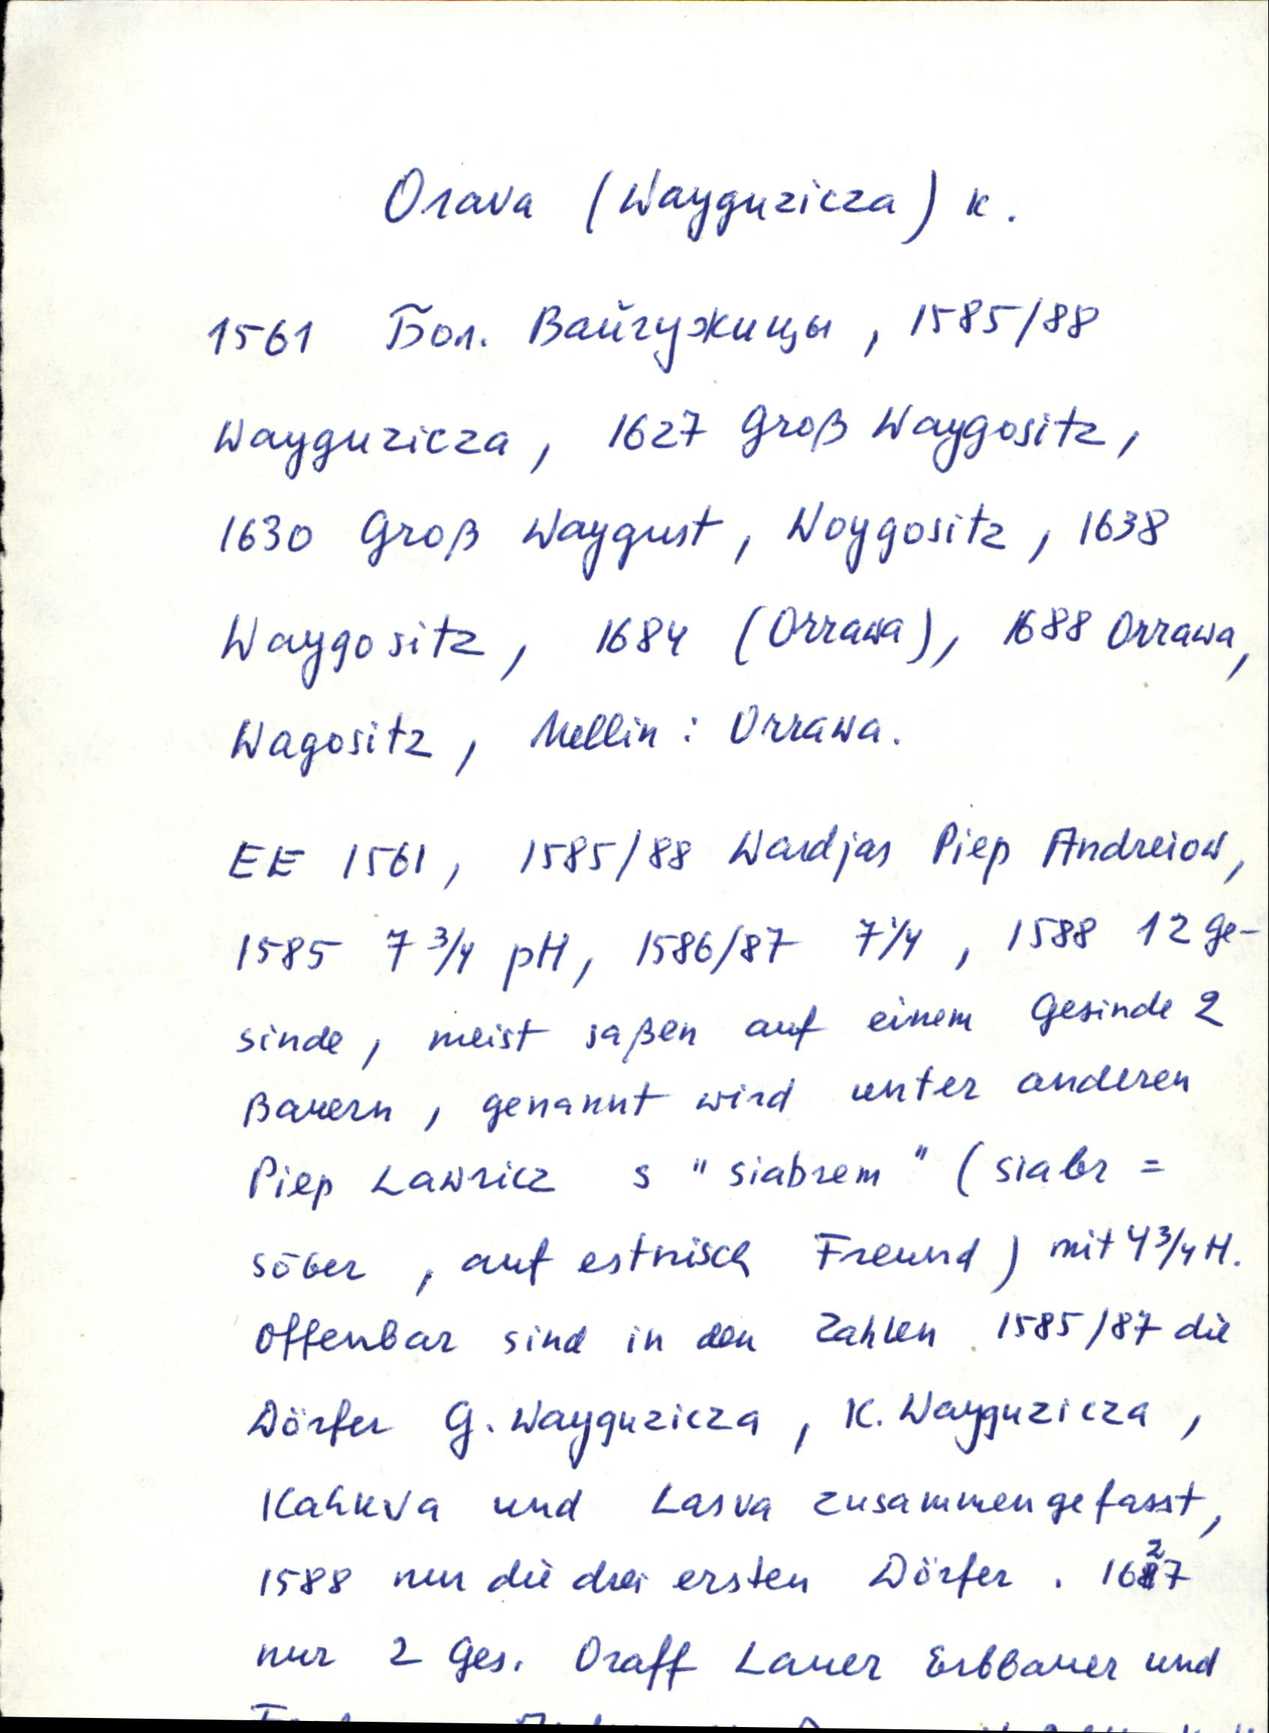 Orava (Wayguzicza) k.
1561 Бол. Вайгужицы, 1585/88
Wayguzicza, 1627 Groß Waygositz,
1630 Groß Waygust, Woygositz, 1638
Waygositz, 1684 (Orrawa), 1688 Orrawa,
Wagositz, Mellin: Orrawa.
EE 1561, 1585/88 Wardjas Piep Andreiow,
1585 7 3/4 pH, 1586/87 7 1/4, 1588 12 Ge-
sinde, meist saßen auf einem Gesinde 2
Bauern, genannt wird unter anderen
Piep Lawricz s "siabrem" (siabr =
sõber, auf estnisch Freund) mit 4 3/4 H.
Offenbar sind in den Zahlen 1585/87 die
Dörfer G. Wayguzicza, K. Wayguzicza,
Kahkva und Lasva zusammengefasst,
1588 nur die drei ersten Dörfer. 1627
nur 2 Ges. Oraff Lauer Erbbauer und